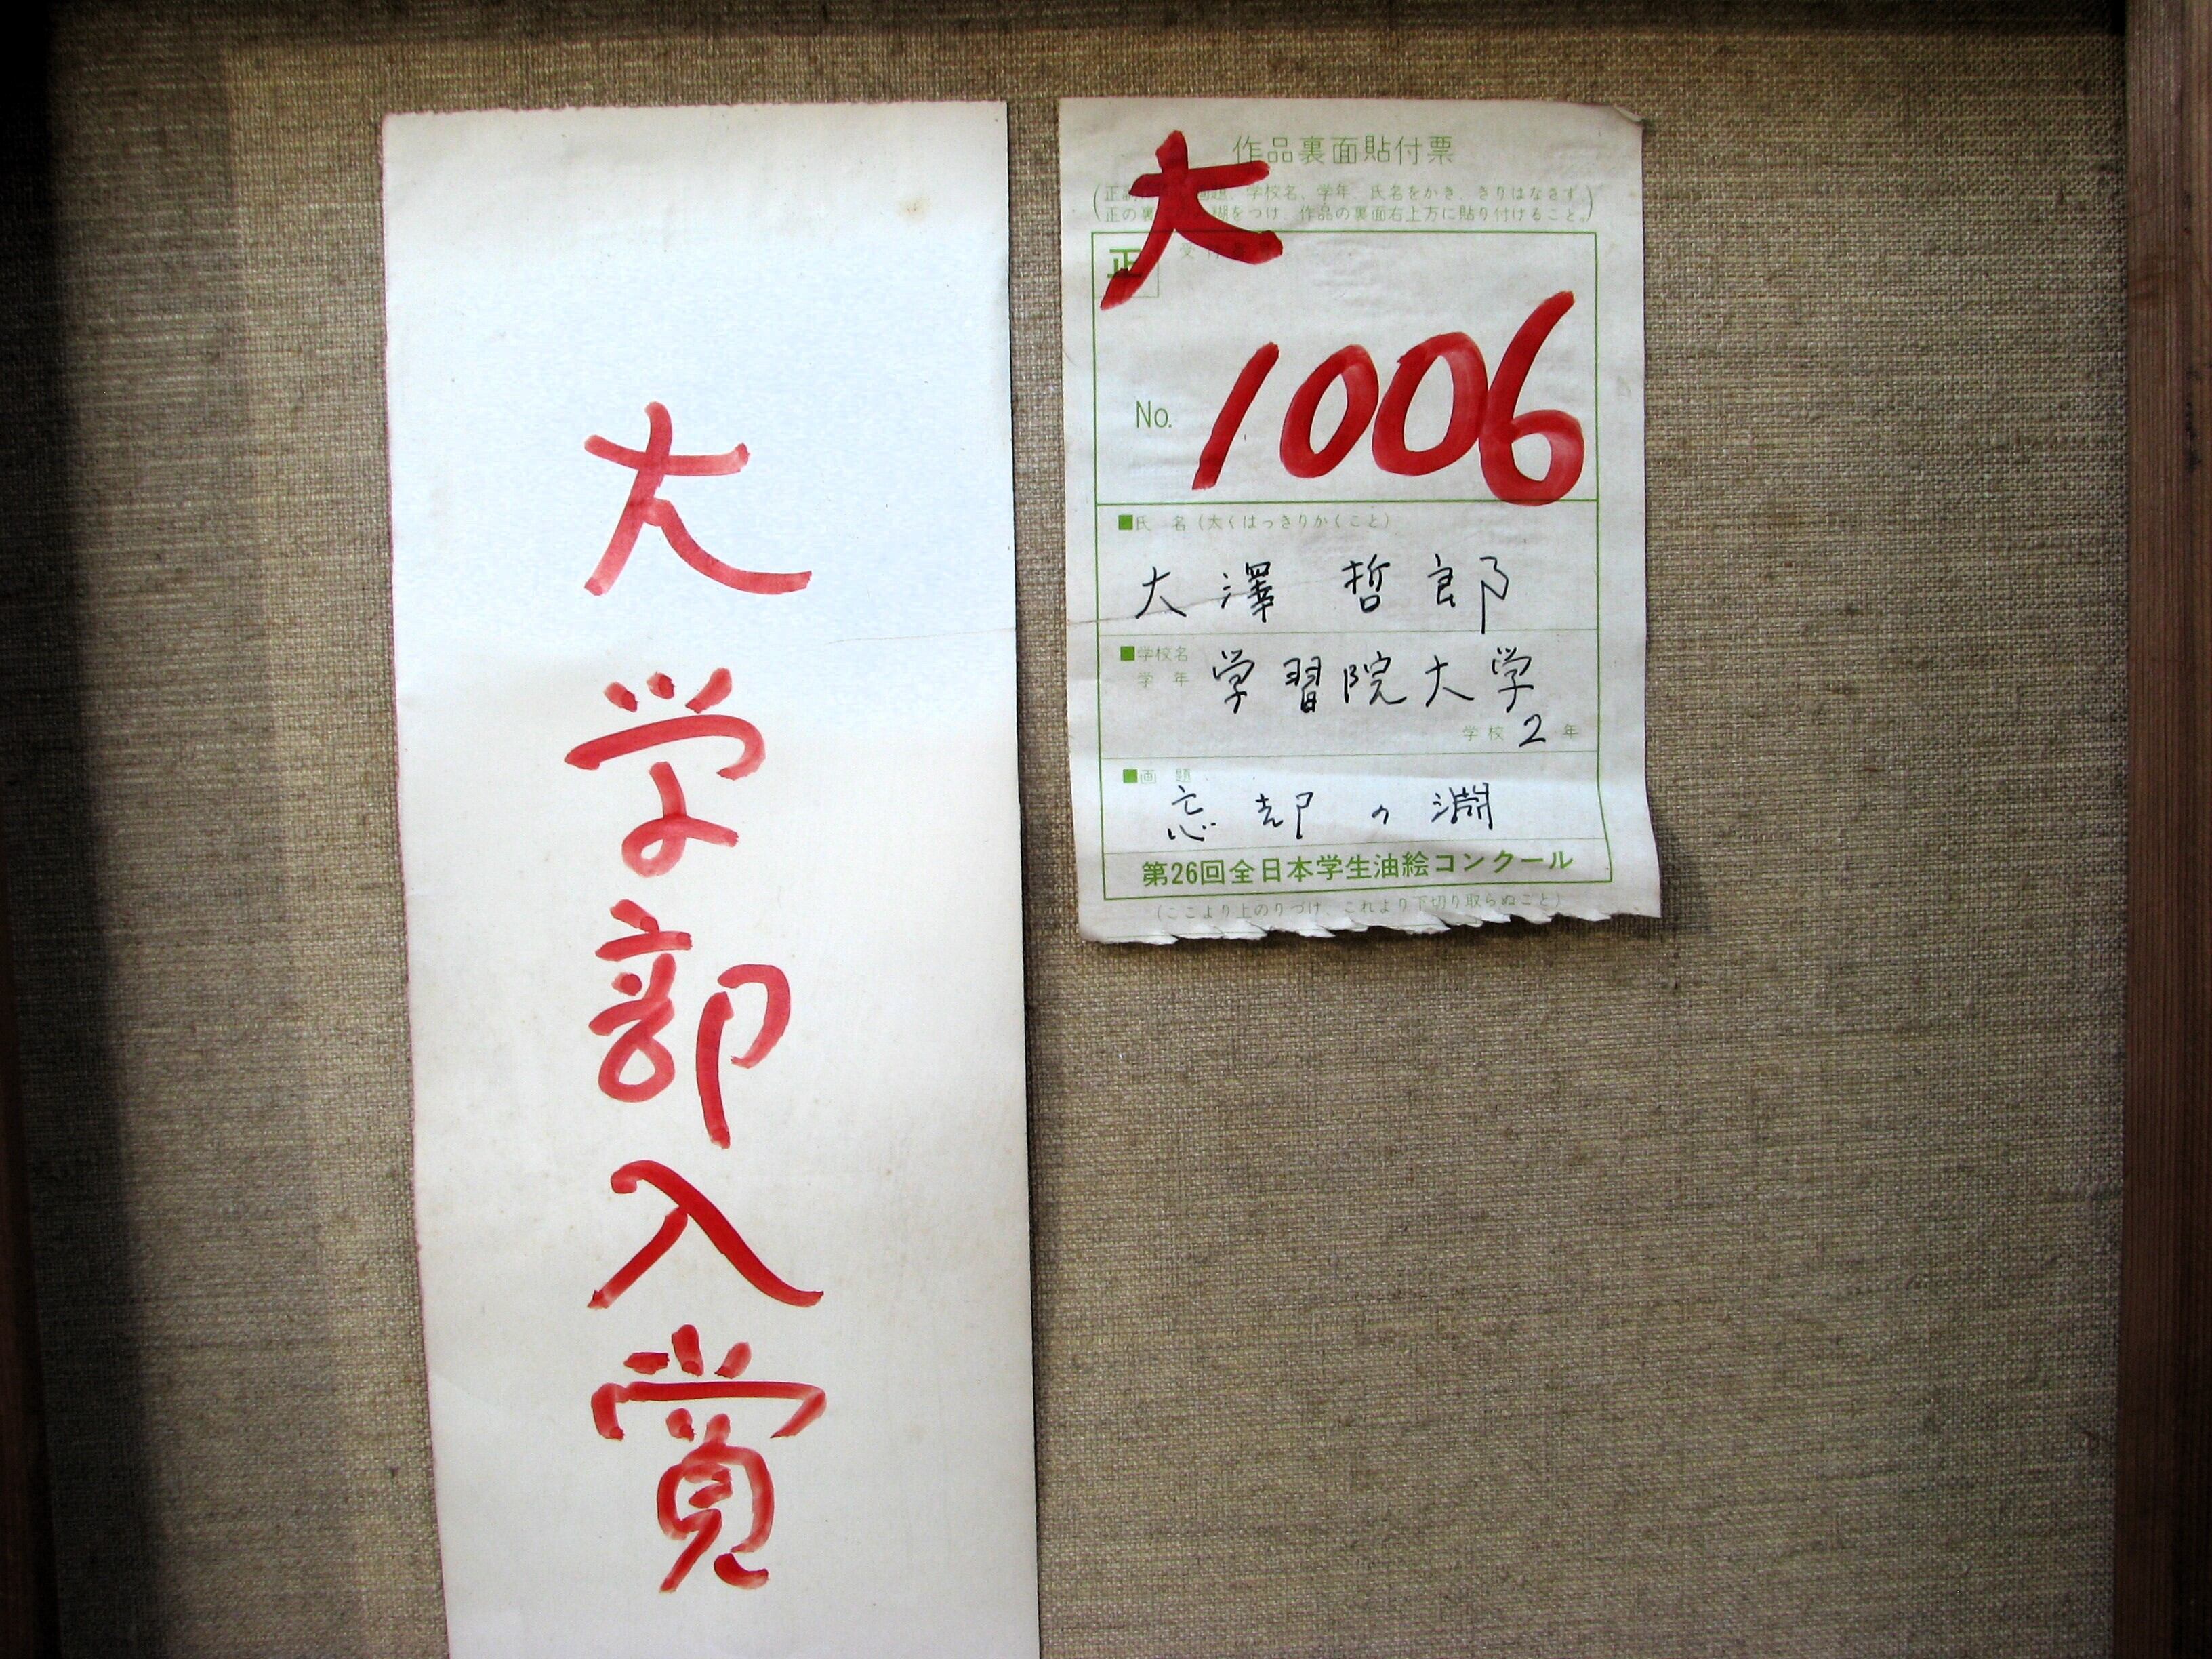 大学部入賞
作品裏面貼付票
学校名、学年、氏名をかき、きりはなさず
正の裏 糊をつけ 作品の裏面右上方に貼り付けること。)
大
正 受
No. 1006
■氏 名(太くはっきりかくこと)
大澤 哲郎
■学校名
学 年
学習院大学
学校 2 年
■画 題
忘却の淵
第26回全日本学生油絵コンクール
(ここより上のりづけ、これより下切り取らぬこと)